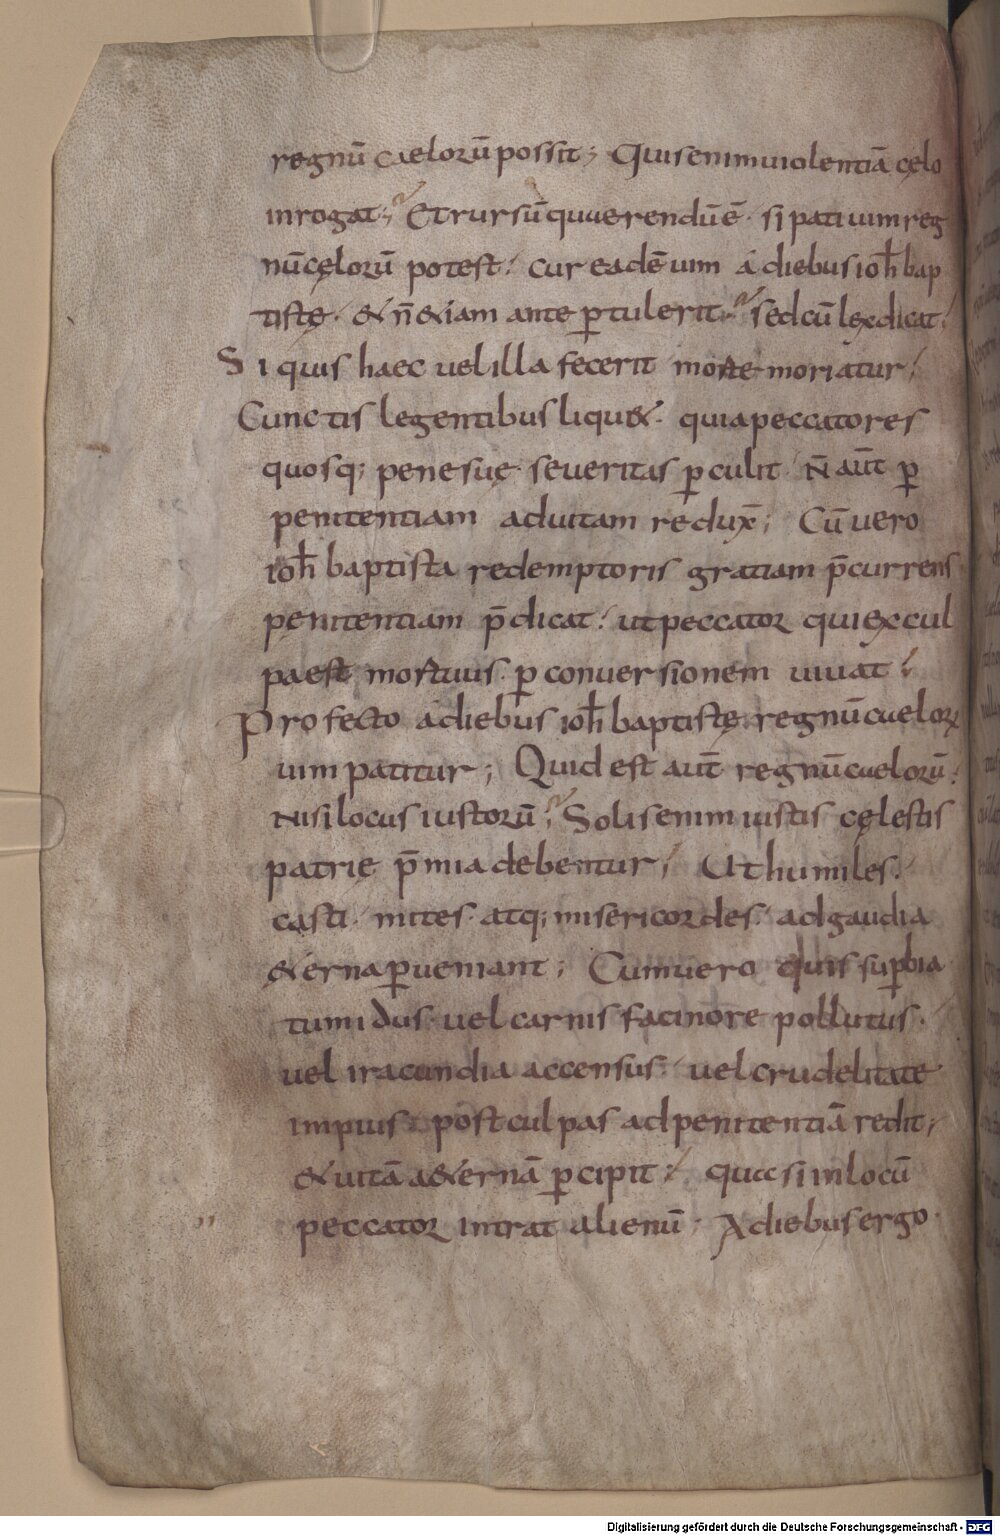 regnū caelorū possit; Quis enim uiolentiā cęlo
inrogat; Et rursū querendū ē. si pati uim reg
nū cęlorū potest. cur eadē uim a diebus ioħ bap
tistę. & n̄ &iam ante ꝑtulerit. sed cū lex dicat.
Si quis haec uel illa fecerit morte moriatur.
Cunctis legentibus liqu&. quia peccatores
quosq; pene suę seueritas ꝑculit. N̄ aūt ꝑ
penitentiam ad uitam redux̄; Cū uero
ioħ baptista redemptoris gratiam p̄currens
penitentiam p̄dicat. ut peccator qui ex cul
pa est mortuus. ꝑ conuersionem uiuat.
Profecto a diebus ioħ baptistę regnū caelorꝝ
uim patitur; Quid est aūt regnū caelorū.
Nisi locus iustorū; Solis enim iustis cęlestis
patrię p̄mia debentur. Ut humiles.
casti. mites. atq; misericordes. ad gaudia
&erna ꝑueniant; Cum uero quis suꝑbia
tumidus. uel carnis facinore pollutus.
uel iracundia accensus. uel crudelitate
impius post culpas ad penitentiā redit;
& uitā a&ernā ꝑcipit. quasi in locū
peccator intrat alienū; A diebus ergo
Digitalisierung gefördert durch die Deutsche Forschungsgemeinschaft - DFG